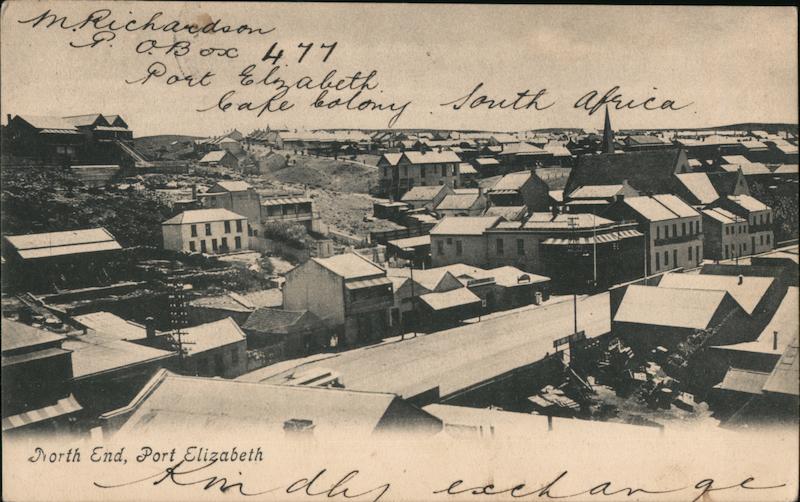 M. Richardson
P. O. Box 477
Port Elizabeth
Cape Colony South Africa
North End, Port Elizabeth
Kindly exchange